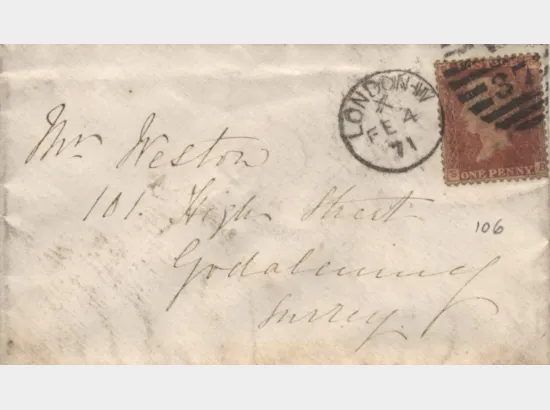 LONDON-W
X
FE 4
71
37
ONE PENNY
Mr Weston
101. High Street
Godalming
Surrey
106